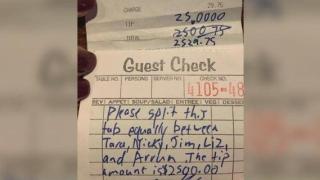 CHARGE 29.75
TIP 25,0000
2500 75
TOTAL 2529.75
Guest Check
TABLE NO. PERSONS SERVER NO. CHECK NO.
4105-48
REV APPET SOUP/SALAD ENTREE VEG DESSE
Please split this
tab equally between
Tara, Nicky, Jim, Liz,
and Arrun The tip
amount is $2500.00